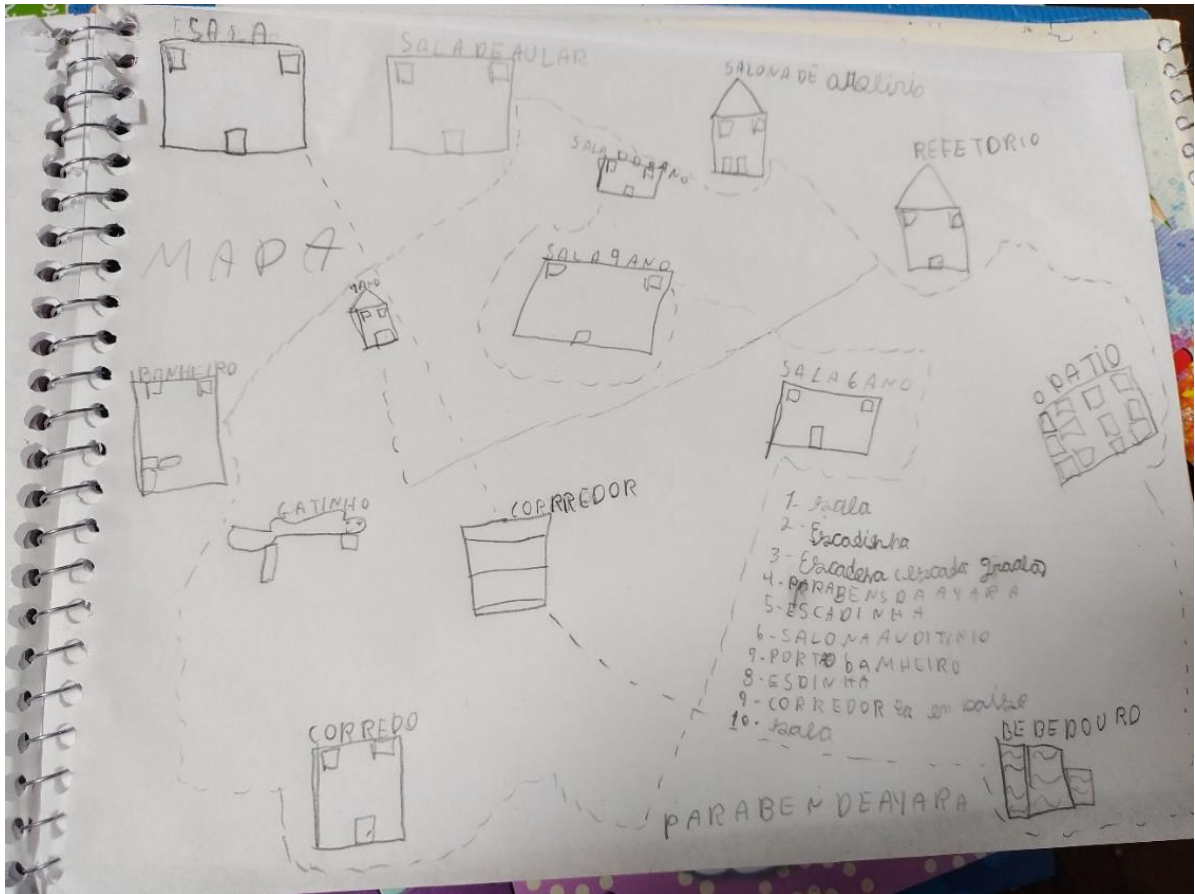 SALA
SALA DE AULAR
SALONA DE
REFETORIO
SALA DO 8 ANO
MAPA
SALA 9 ANO
7 ANO
BANHEIRO
SALA 6 ANO
O PATIO
GATINHO
CORRREDOR
1- sala
2- Escadinha
3- Escadona (escada
4- PARABENS DA AYARA
5- ESCADINHA
6- SALONA AUDITIRIO
9- PORTA BAMHEIRO
8- ESDINHA
9- CORREDOR la em baixo
10- sala
CORREDO
BEBEDOURO
PARABEN DE AYARA